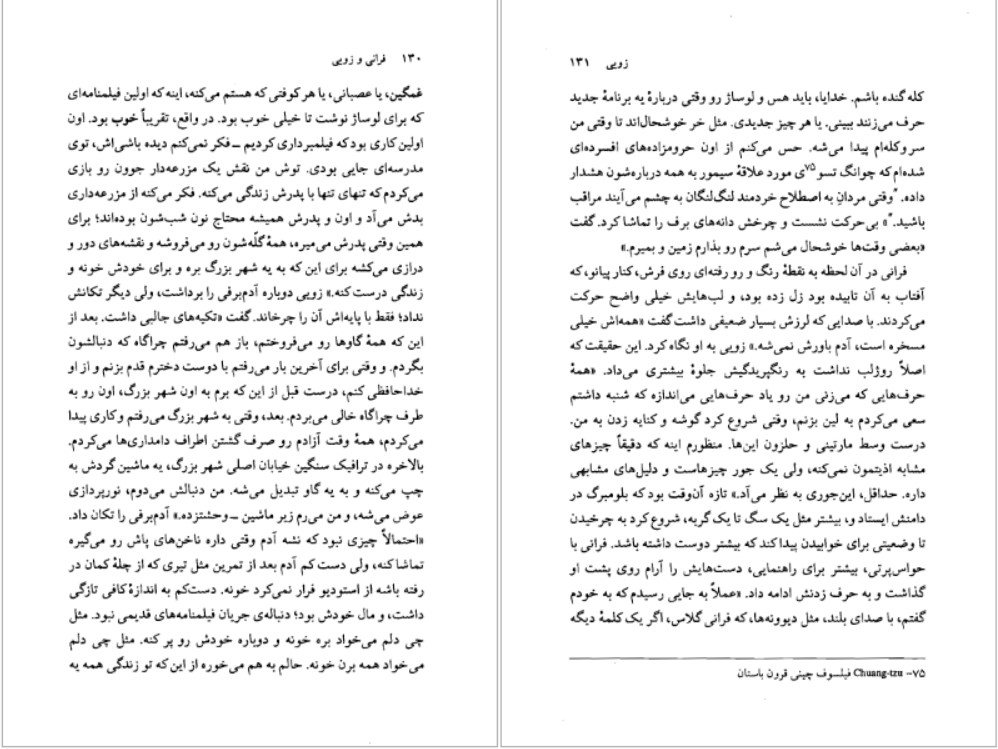 ۱۳۰ فرانی و زویی
غمگین، یا عصبانی، یا هر کوفتی که هستم می‌کنه، اینه که اولین فیلمنامه‌ای
که برای لوساژ نوشت تا خیلی خوب بود. در واقع، تقریباً خوب بود. اون
اولین کاری بود که فیلمبرداری کردیم ـ فکر نمی‌کنم دیده باشی‌اش، توی
مدرسه‌ای جایی بودی. توش من نقش یک مزرعه‌دار جوون رو بازی
می‌کردم که تنهای تنها با پدرش زندگی می‌کنه. فکر می‌کنه از مزرعه‌داری
بدش می‌آد و اون و پدرش همیشه محتاج نون شب‌شون بوده‌اند؛ برای
همین وقتی پدرش می‌میره، همهٔ گلّه‌شون رو می‌فروشه و نقشه‌های دور و
درازی می‌کشه برای این که به یه شهر بزرگ بره و برای خودش خونه و
زندگی درست کنه.» زویی دوباره آدم‌برفی را برداشت، ولی دیگر تکانش
نداد؛ فقط با پایه‌اش آن را چرخاند. گفت «تکیه‌های جالبی داشت. بعد از
این که همهٔ گاوها رو می‌فروختم، باز هم می‌رفتم چراگاه که دنبالشون
بگردم. و وقتی برای آخرین بار می‌رفتم با دوست دخترم قدم بزنم و از او
خداحافظی کنم، درست قبل از این که برم به اون شهر بزرگ، اون رو به
طرف چراگاه خالی می‌بردم. بعد، وقتی به شهر بزرگ می‌رفتم و کاری پیدا
می‌کردم، همهٔ وقت آزادم رو صرف گشتن اطراف دامداری‌ها می‌کردم.
بالاخره در ترافیک سنگین خیابان اصلی شهر بزرگ، یه ماشین گردش به
چپ می‌کنه و به یه گاو تبدیل می‌شه. من دنبالش می‌دوم، نورپردازی
عوض می‌شه، و من می‌رم زیر ماشین ـ وحشتزده.» آدم‌برفی را تکان داد.
«احتمالاً چیزی نبود که نشه آدم وقتی داره ناخن‌های پاش رو می‌گیره
تماشا کنه، ولی دست کم آدم بعد از تمرین مثل تیری که از چلهٔ کمان در
رفته باشه از استودیو فرار نمی‌کرد خونه. دست‌کم به اندازهٔ کافی تازگی
داشت، و مال خودش بود؛ دنباله‌ی جریان فیلمنامه‌های قدیمی نبود. مثل
چی دلم می‌خواد بره خونه و دوباره خودش رو پر کنه. مثل چی دلم
می‌خواد همه برن خونه. حالم به هم می‌خوره از این که تو زندگی همه یه
زویی ۱۳۱
کله گنده باشم. خدایا، باید هس و لوساژ رو وقتی دربارهٔ یه برنامهٔ جدید
حرف می‌زنند ببینی. یا هر چیز جدیدی. مثل خر خوشحال‌اند تا وقتی من
سر و کله‌ام پیدا می‌شه. حس می‌کنم از اون حرومزاده‌های افسرده‌ای
شده‌ام که چوانگ تسو۷۵ی مورد علاقهٔ سیمور به همه درباره‌شون هشدار
داده. "وقتی مردانِ به اصطلاح خردمند لنگ‌لنگان به چشم می‌آیند مراقب
باشید."» بی‌حرکت نشست و چرخش دانه‌های برف را تماشا کرد. گفت
«بعضی وقت‌ها خوشحال می‌شم سرم رو بذارم زمین و بمیرم.»
فرانی در آن لحظه به نقطهٔ رنگ و رو رفته‌ای روی فرش، کنار پیانو، که
آفتاب به آن تابیده بود زل زده بود، و لب‌هایش خیلی واضح حرکت
می‌کردند. با صدایی که لرزش بسیار ضعیفی داشت گفت «همه‌اش خیلی
مسخره است، آدم باورش نمی‌شه.» زویی به او نگاه کرد. این حقیقت که
اصلاً روژلب نداشت به رنگپریدگیش جلوهٔ بیشتری می‌داد. «همهٔ
حرف‌هایی که می‌زنی من رو یاد حرف‌هایی می‌اندازه که شنبه داشتم
سعی می‌کردم به لین بزنم، وقتی شروع کرد گوشه و کنایه زدن به من.
درست وسط مارتینی و حلزون این‌ها. منظورم اینه که دقیقاً چیزهای
مشابه اذیتمون نمی‌کنه، ولی یک جور چیزهاست و دلیل‌های مشابهی
داره. حداقل، این‌جوری به نظر می‌آد.» تازه آن‌وقت بود که بلومبرگ در
دامنش ایستاد و، بیشتر مثل یک سگ تا یک گربه، شروع کرد به چرخیدن
تا وضعیتی برای خوابیدن پیدا کند که بیشتر دوست داشته باشد. فرانی با
حواس‌پرتی، بیشتر برای راهنمایی، دست‌هایش را آرام روی پشت او
گذاشت و به حرف زدنش ادامه داد. «عملاً به جایی رسیدم که به خودم
گفتم، با صدای بلند، مثل دیوونه‌ها، که فرانی گلاس، اگر یک کلمهٔ دیگه
۷۵- Chuang-tzu فیلسوف چینی قرون باستان